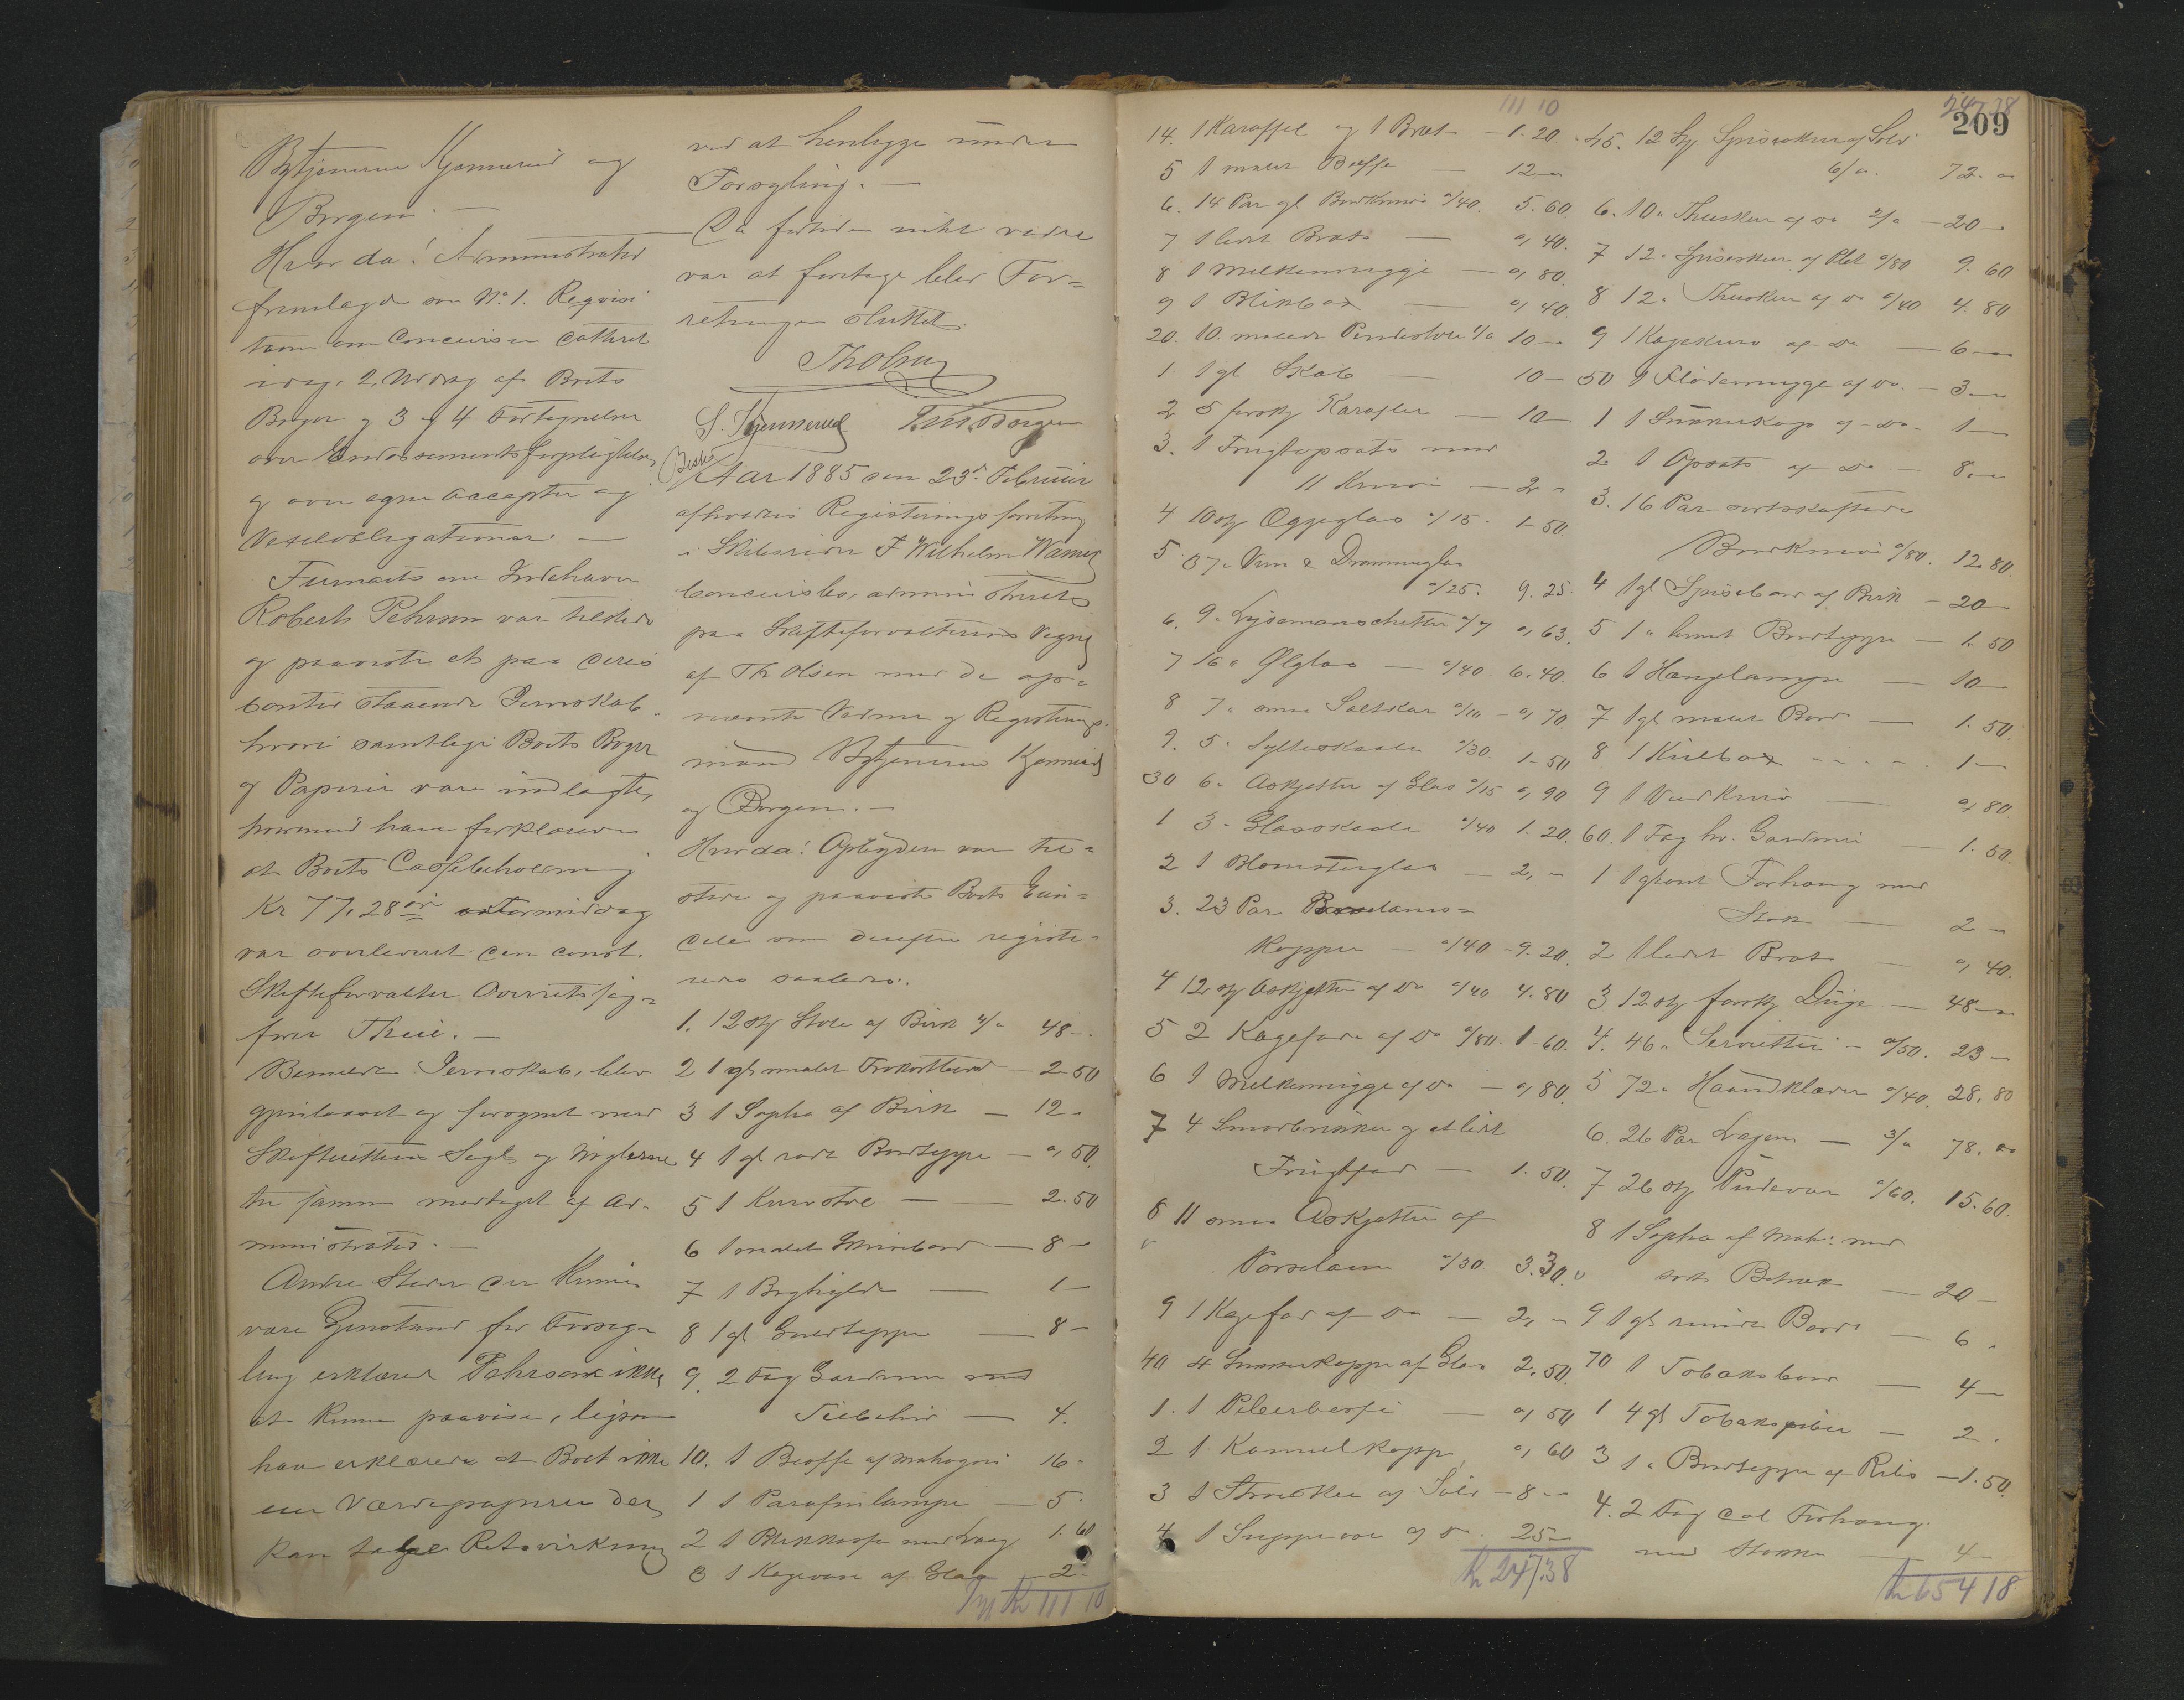 Bytjenerne Kjennerud og
Borgen. —
Hvor da! Administrator
fremlagde som No. 1. Reqvisi
tionen om Concursen dateret
idag, 2, Uddrag af Boets
Bøger og 3 og 4 Fortegnelser
over Endossementsforpligtelser
og over egne Accepter og
Vexelobligationer. —
Firmaets ene Indehaver
Robert Pehrson var tilstede
og paaviste et paa deres
Contor staaende Jernskab,
hvori samtlige Boets Bøger
og Papirer vare indlagte,
hvormed han forklarede
at Boets Cassebeholdning
Kr 77,28 øre eftermiddag
var overleveret den const.
Skifteforvalter Overretssag=
fører Thue. —
Bemeldte Jernskab, blev
gjenlaaset og forsynet med
Skifterettens Segl og Nøglerne
til samme modtaget af Ad-
ministrator. —
Andre Steder der kunne
være Gjenstand for Forseg-
ling erklærede Pehrson ikke
at kunne paavise, ligesom
han erklærede at Boet ikke
eier Værdipapirer der
kan tabe Retsvirkning
ved at henligge under
Forsegling. —
Da forøvrigt intet videre
var at foretage blev For=
retningen sluttet.
Th Olsen
S. Kjennerud
Borgen
Aar 1885 den 23de Februar
afholdtes Registreringsforretning
i Skibsreder F Wilhelm
Concursbo, administreret
paa Skifteforvalterens Vegne
af Th Olsen med de op=
nævnte Vidner og Registrerings-
mænd Bytjenerne Kjennerud
og Borgen. —
Hvor da! Opbyderen var til=
stede og paaviste Boets Eien=
dele som derefter registre=
redes saaledes:
1. 12 stk Stole af Birk 4/" 48 —
2 1 gl. malet Frokostbord — 2-50
3 1 Sopha af Birk — 12 -
4 1 gl rødt Bordteppe — ", 50.
5 1 Kurvstol — 2.50
6 1 malet Skrivebord — 8 —
7 1 Boghylde — 1 —
8 1 gl Gulvteppe — 8 -
9. 2 Fag Gardiner med
Tilbehør — 4.
10. 1 Beaffe af Mahogni 16 -
1 1 Parafinlampe — 5 -
2 1 Blikkasse med Laag 1. 60
3 1 Kagevase af Glas — 2 -
Kr 111 10
111 10
14. 1 Karaffel og 1 Bret — 1. 20
5 1 malet Beaffe — 12 —
6. 14 Par gl Bordknive "/40. 5. 60.
7 1 lidet Bret — ", 40.
8 1 Melkemugge — ", 80.
9 1 Blikbox — ", 40.
20. 10. malede Pindestole 1/" 10 —
1 1 gl Skab — 10 —
2 5 forskj Karafler — 10 —
3. 1 Frugtopsats med
11 Knive — 2 -
4 10 stk Øggeglas "/15. 1-50
5. 37 " Vin & Dramme glas
"/25. 9. 25.
6. 9 " Lysemanschetter "/7 ", 63.
7 16 " Ølglas — "/40 6. 40.
8 7 " smaa Saltkar "/10 — ", 70
9. 5 " Sylteskaale "/30 1-50
30 6 " Asjetter af Glas "/15 ", 90
1 3 " Glasskaale "/40 1. 20.
2 1 Blomsterglas — 2, -
3. 23 Par Porcelains=
Kopper — "/40 — 9. 20.
4 12 stk Asjetter af Do "/40 4. 80
5 2 Kagefade af Do "/80. 1. 60.
6 1 Melkemugge af Do — ", 80.
7 4 Smørbrikker og et lidet
Frugtfad — 1. 50.
8 11 smaa Asjetter af
Porselaen "/30 3.30.
9 1 Kagefad af Do — 2, -
40 4 Sukkerkopper af Glas 2. 50.
1. 1 Peberbøsse — ", 50
2 1 Kanelkopp ", 60
3 1 Strøske af Sølv — 8 -
4 1 Suppeøse af Do. 25 —
Kr 247.38
247.38
209
45. 12 Stk Spiseskeer af Sølv
6/". 72. "
6. 10 " Theskeer af Do 2/" — 20 —
7 12 " Spiseskeer af Plet "/80 9. 60
8 12 " Theskeer af Do "/40 4. 80
9 1 Kagekurv af Do — 6 —
50 1 Flødemugge af Do. — 3 —
1 1 Sukkerkop af Do — 1 —
2 1 Opsats af Do — 8. —
3. 16 Par sortskaftede
Bordknive "/80. 12. 80.
4 1 gl Spisebord af Birk — 20 —
5 1 " brunt Bordteppe — 1. 50
6 1 Hængelampe — 10 —
7 1 gl malet Bord — 1. 50.
8 1 Kulbox - - - - 1 —
9 1 Vedkurv — ", 80.
60. 1 Fag hv. Gardiner — 1. 50.
1 1 grønt Forhæng med
Stok — 2 —
2 1 lidet Bret — ", 40.
3 12 stk forskj Duge — 48 —
4. 46 " Servietter — "/50. 23 —
5 72 " Haandklæder "/40. 28. 80
6. 26 Par Lagener — 3/" 78. "
7 26 stk Pudevar "/60. 15. 60.
8 1 Sopha af Mah: med
sort Betræk — 20 —
9 1 gl rundt Bord — 6.
70 1 Tobaksbord — 4 —
1 4 gl Tobakspiber — 2.
3 1 " Bordteppe af Ribs — 1. 50.
4. 2 Fag Forhæng
med Stokke — 4 —
Kr 654 18